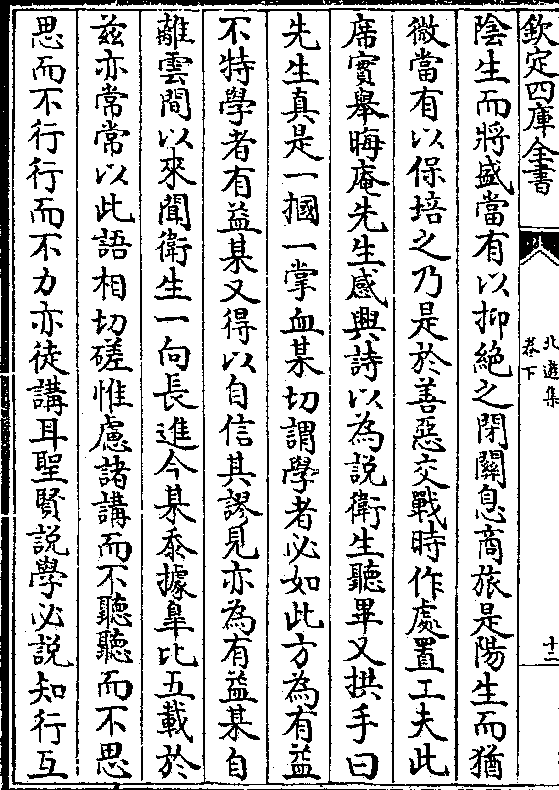 欽定四庫全書
北遊集
卷下
十二
陰生而將盛當有以抑絶之閉關息商旅是陽生而猶
微當有以保培之乃是於善惡交戰時作處置工夫此
席實舉晦庵先生感興詩以為説衛生聽畢又拱手曰
先生真是一摑一掌血某切謂學者必如此方為有益
不特學者有益某又得以自信其謬見亦為有益某自
離雲間以來聞衛生一向長進今某忝據臯比五載於
兹亦常常以此語相切磋惟慮諸講而不聽聽而不思
思而不行行而不力亦徒講耳聖賢説學必説知行互